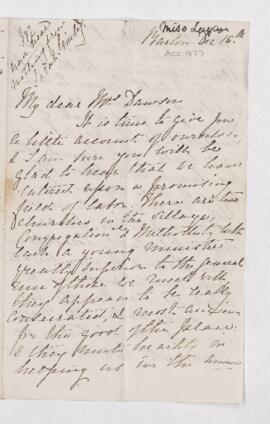 Miss Logan
Barton Dec 16th
ACC 1377
My dear Mrs Dawson
It is time to give you
a little account of ourselves
& I am sure you will be
glad to hear that we have
entered upon a promising
field of labor. There are two
churches in the village,
Congregational & Methodist, both
with a young minister
greatly superior to the general
run of those we meet with
they appear to be really
consecrated, & most anxious
for the good of the place
& they unite heartily in
helping us in the